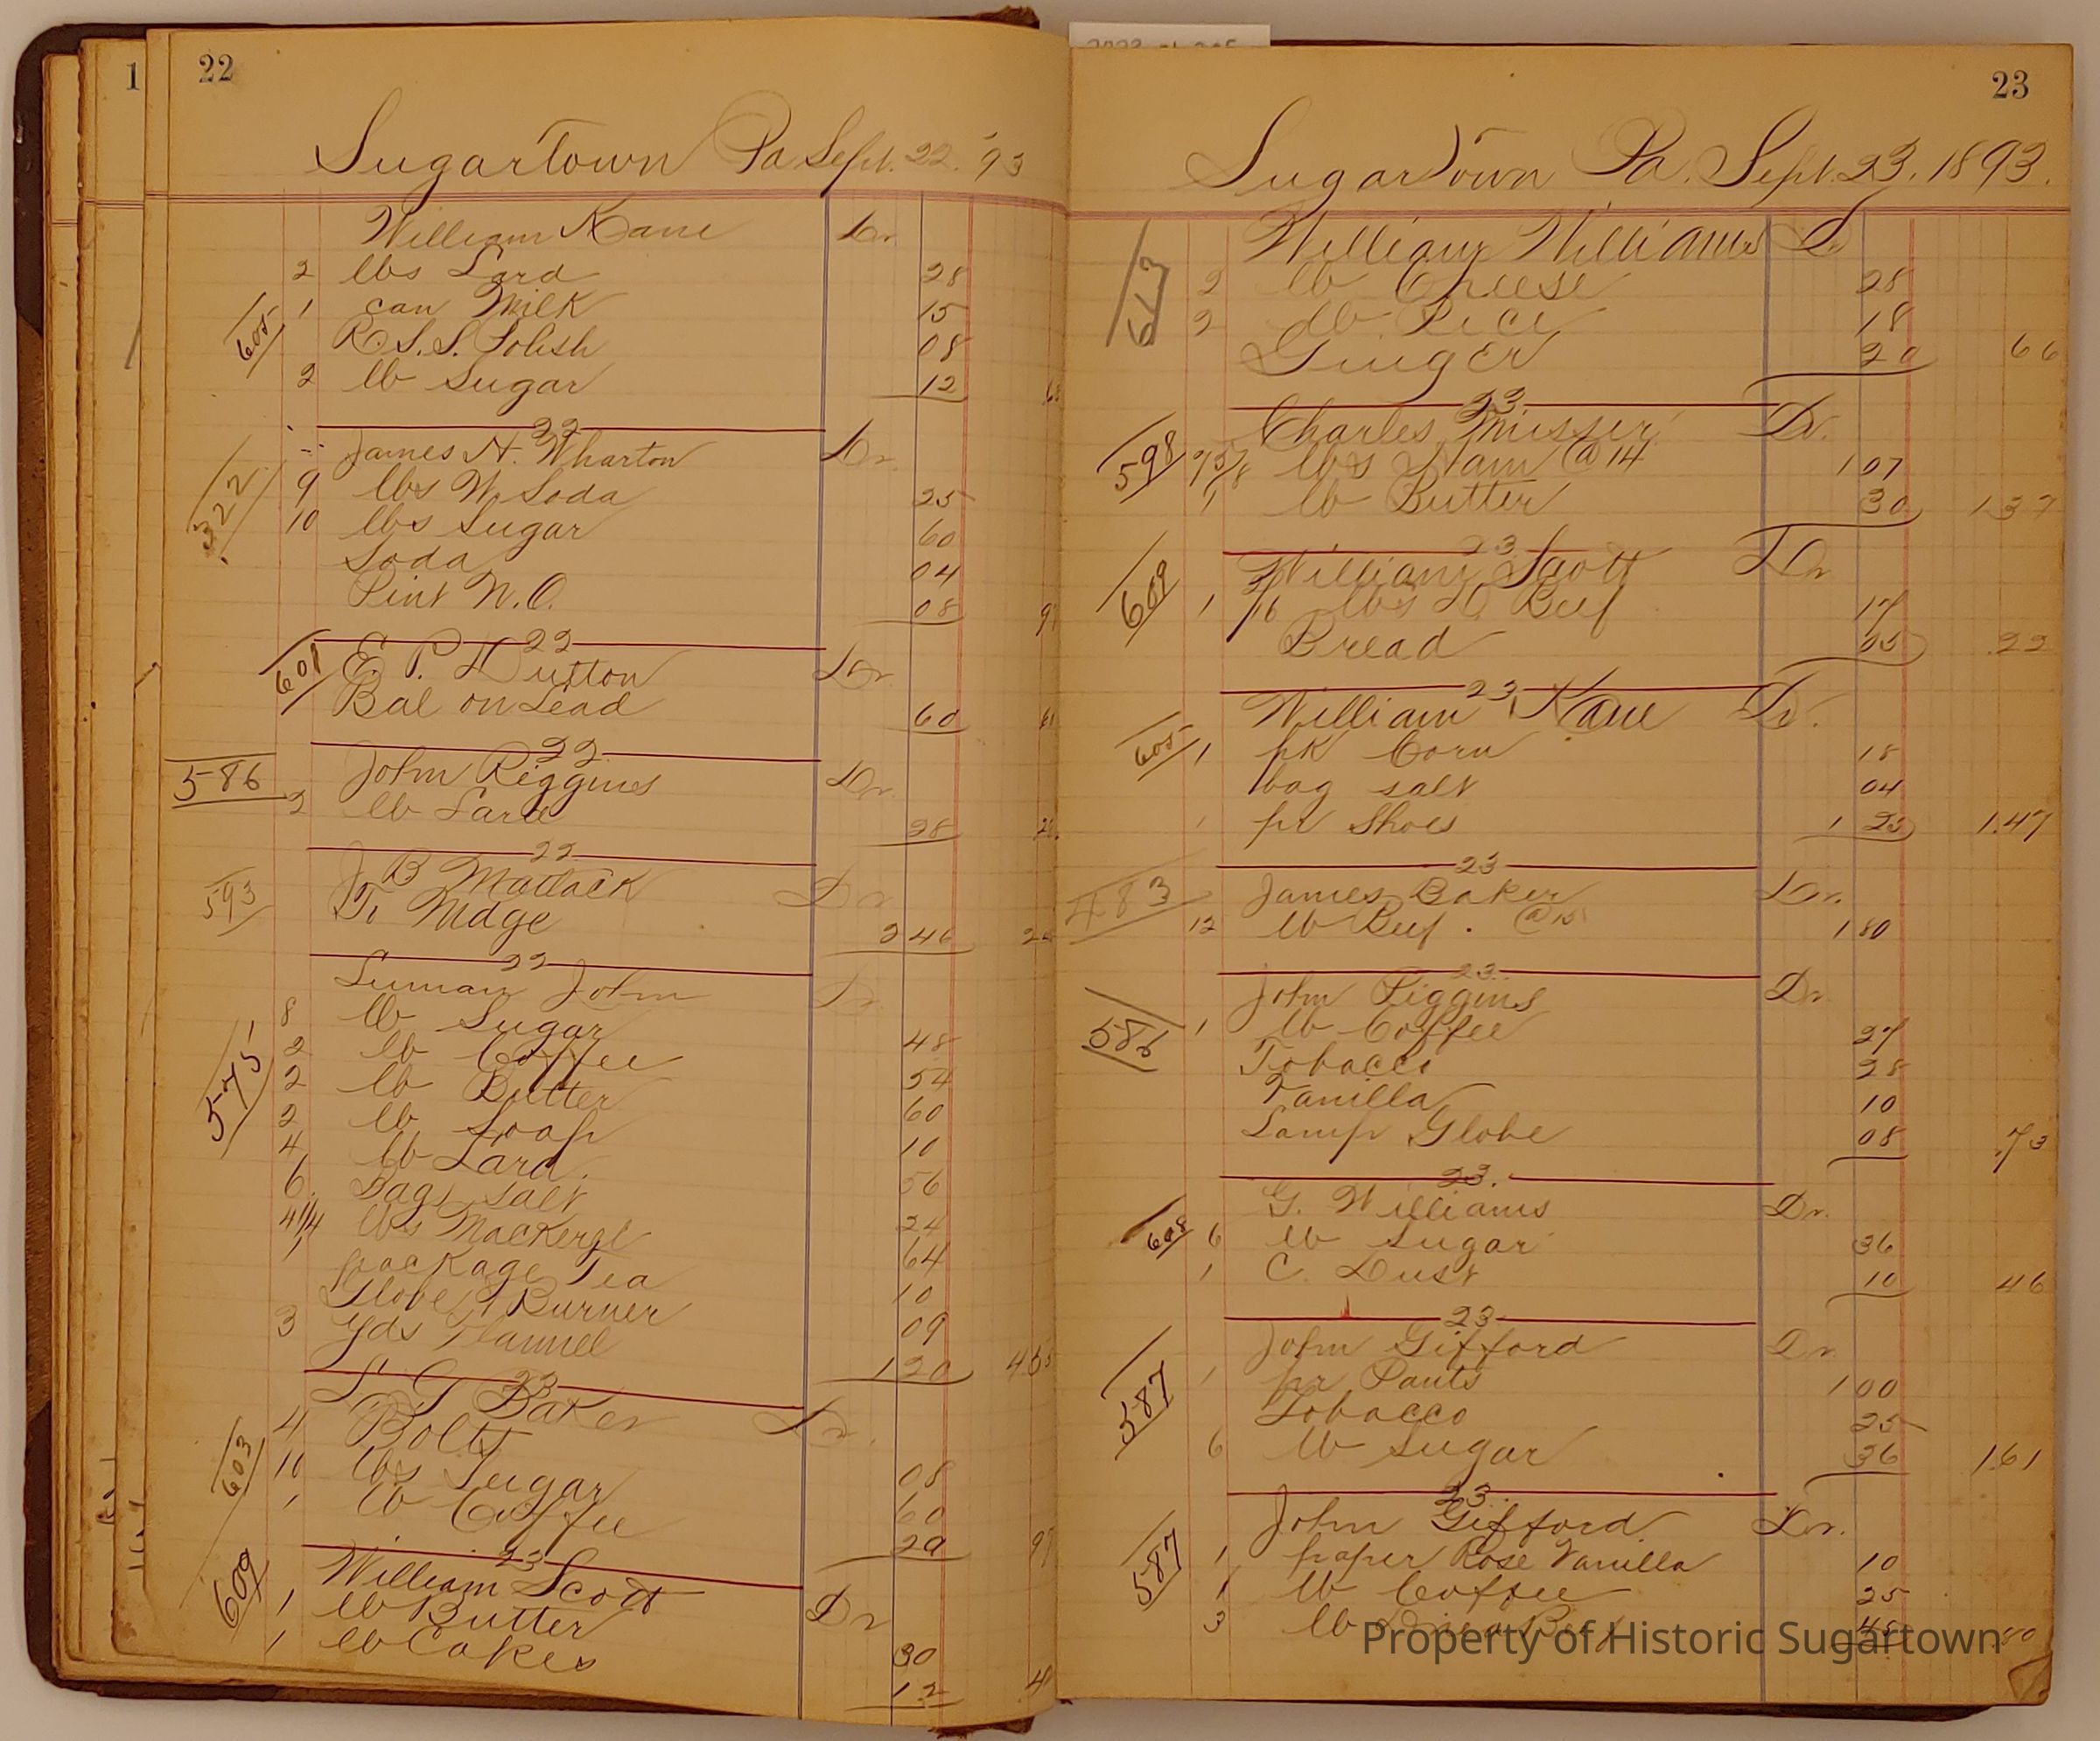 1
22
Sugartown Pa Sept. 22. '93
William Kane Dr
2 lbs Lard 28
605 1 can Milk 15
R.S.S. Polish 08
2 lb Sugar 12 63
22
James H. Wharton Dr
322 9 lbs W. Soda 25
10 lbs Sugar 60
Soda 04
Pint N.O. 08 97
22
601 E. P. Dutton Dr.
Bal on Lead 60 60
22
586 John Riggins Dr.
2 lb Lard 28 28
22
593 J B Matlack Dr
To Mdge 2 46 2 4
22
Luman John Dr
8 lb Sugar 48
575 2 lb Coffee 54
2 lb Butter 60
2 lb Soap 10
4 lb Lard. 56
6 Bags Salt 24
4 1/4 lbs Mackerel 64
1 package Tea 10
Globe Burner 09
3 yds Flannel 1 20 4 5
23
L G Baker Dr.
4 Bolts 08
603 10 lbs Sugar 60
1 lb Coffee 29 97
23
609 William Scott Dr
1 lb Butter 30
1 lb Cakes 12 4
23
Sugartown Pa. Sept. 23. 1893.
613 William Williams Dr
2 lb Cheese 28
2 lb. Rice 18
Ginger 20 66
23
Charles Musser Dr.
598 7 5/8 lbs Ham @ 14 1 07
1 lb Butter 30 1 37
23
609 William Scott Dr
1 3/16 lbs D Beef 17
Bread 05 .22
23
William Kane Dr.
605 1 pk Corn 18
bag salt 04
1 pr Shoes 1 25 1.47
23
483 James Baker Dr.
12 lb Beef. @ 15 1 80
23
John Riggins Dr
586 1 lb Coffee 27
Tobacco 28
Vanilla 10
Lamp Globe 08 .73
23.
G. Williams Dr.
608 6 lb Sugar 36
1 C. Dust 10 46
23
John Gifford Dr
587 1 pr Pants 1 00
Tobacco 25
6 lb Sugar 36 1.61
23
John Gifford Dr.
587 1 paper Rose Vanilla 10
1 lb Coffee 25
3 lb Dried Beef 45 .80
Property of Historic Sugartown